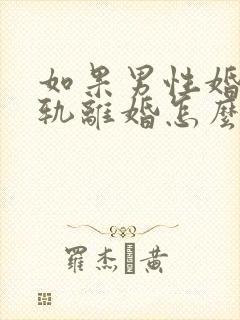 如果男性婚
轨離婚怎麼
羅杰 黃